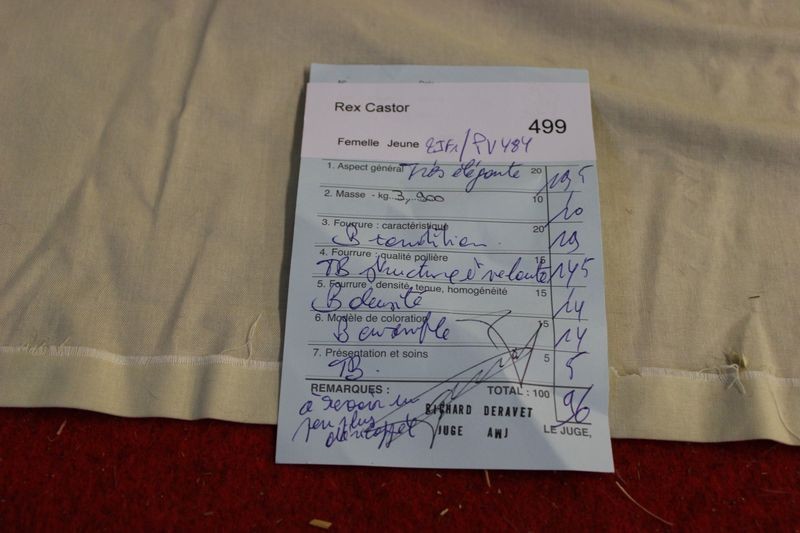 Rex Castor
499
Femelle Jeune EJF1/PV484
1. Aspect général Très élégante 20 19,5
2. Masse - kg. 3,900 10 10
3. Fourrure : caractéristique 20
B condition. 19
4. Fourrure : qualité poilière 15
TB structure & velouté 14,5
5. Fourrure : densité, tenue, homogénéité 15
B densité 14
6. Modèle de coloration 15
B ensemble 14
7. Présentation et soins 5
TB. 5
REMARQUES : TOTAL : 100 96
à revoir un
peu plus
RICHARD DERAVET
JUGE AWJ
LE JUGE,